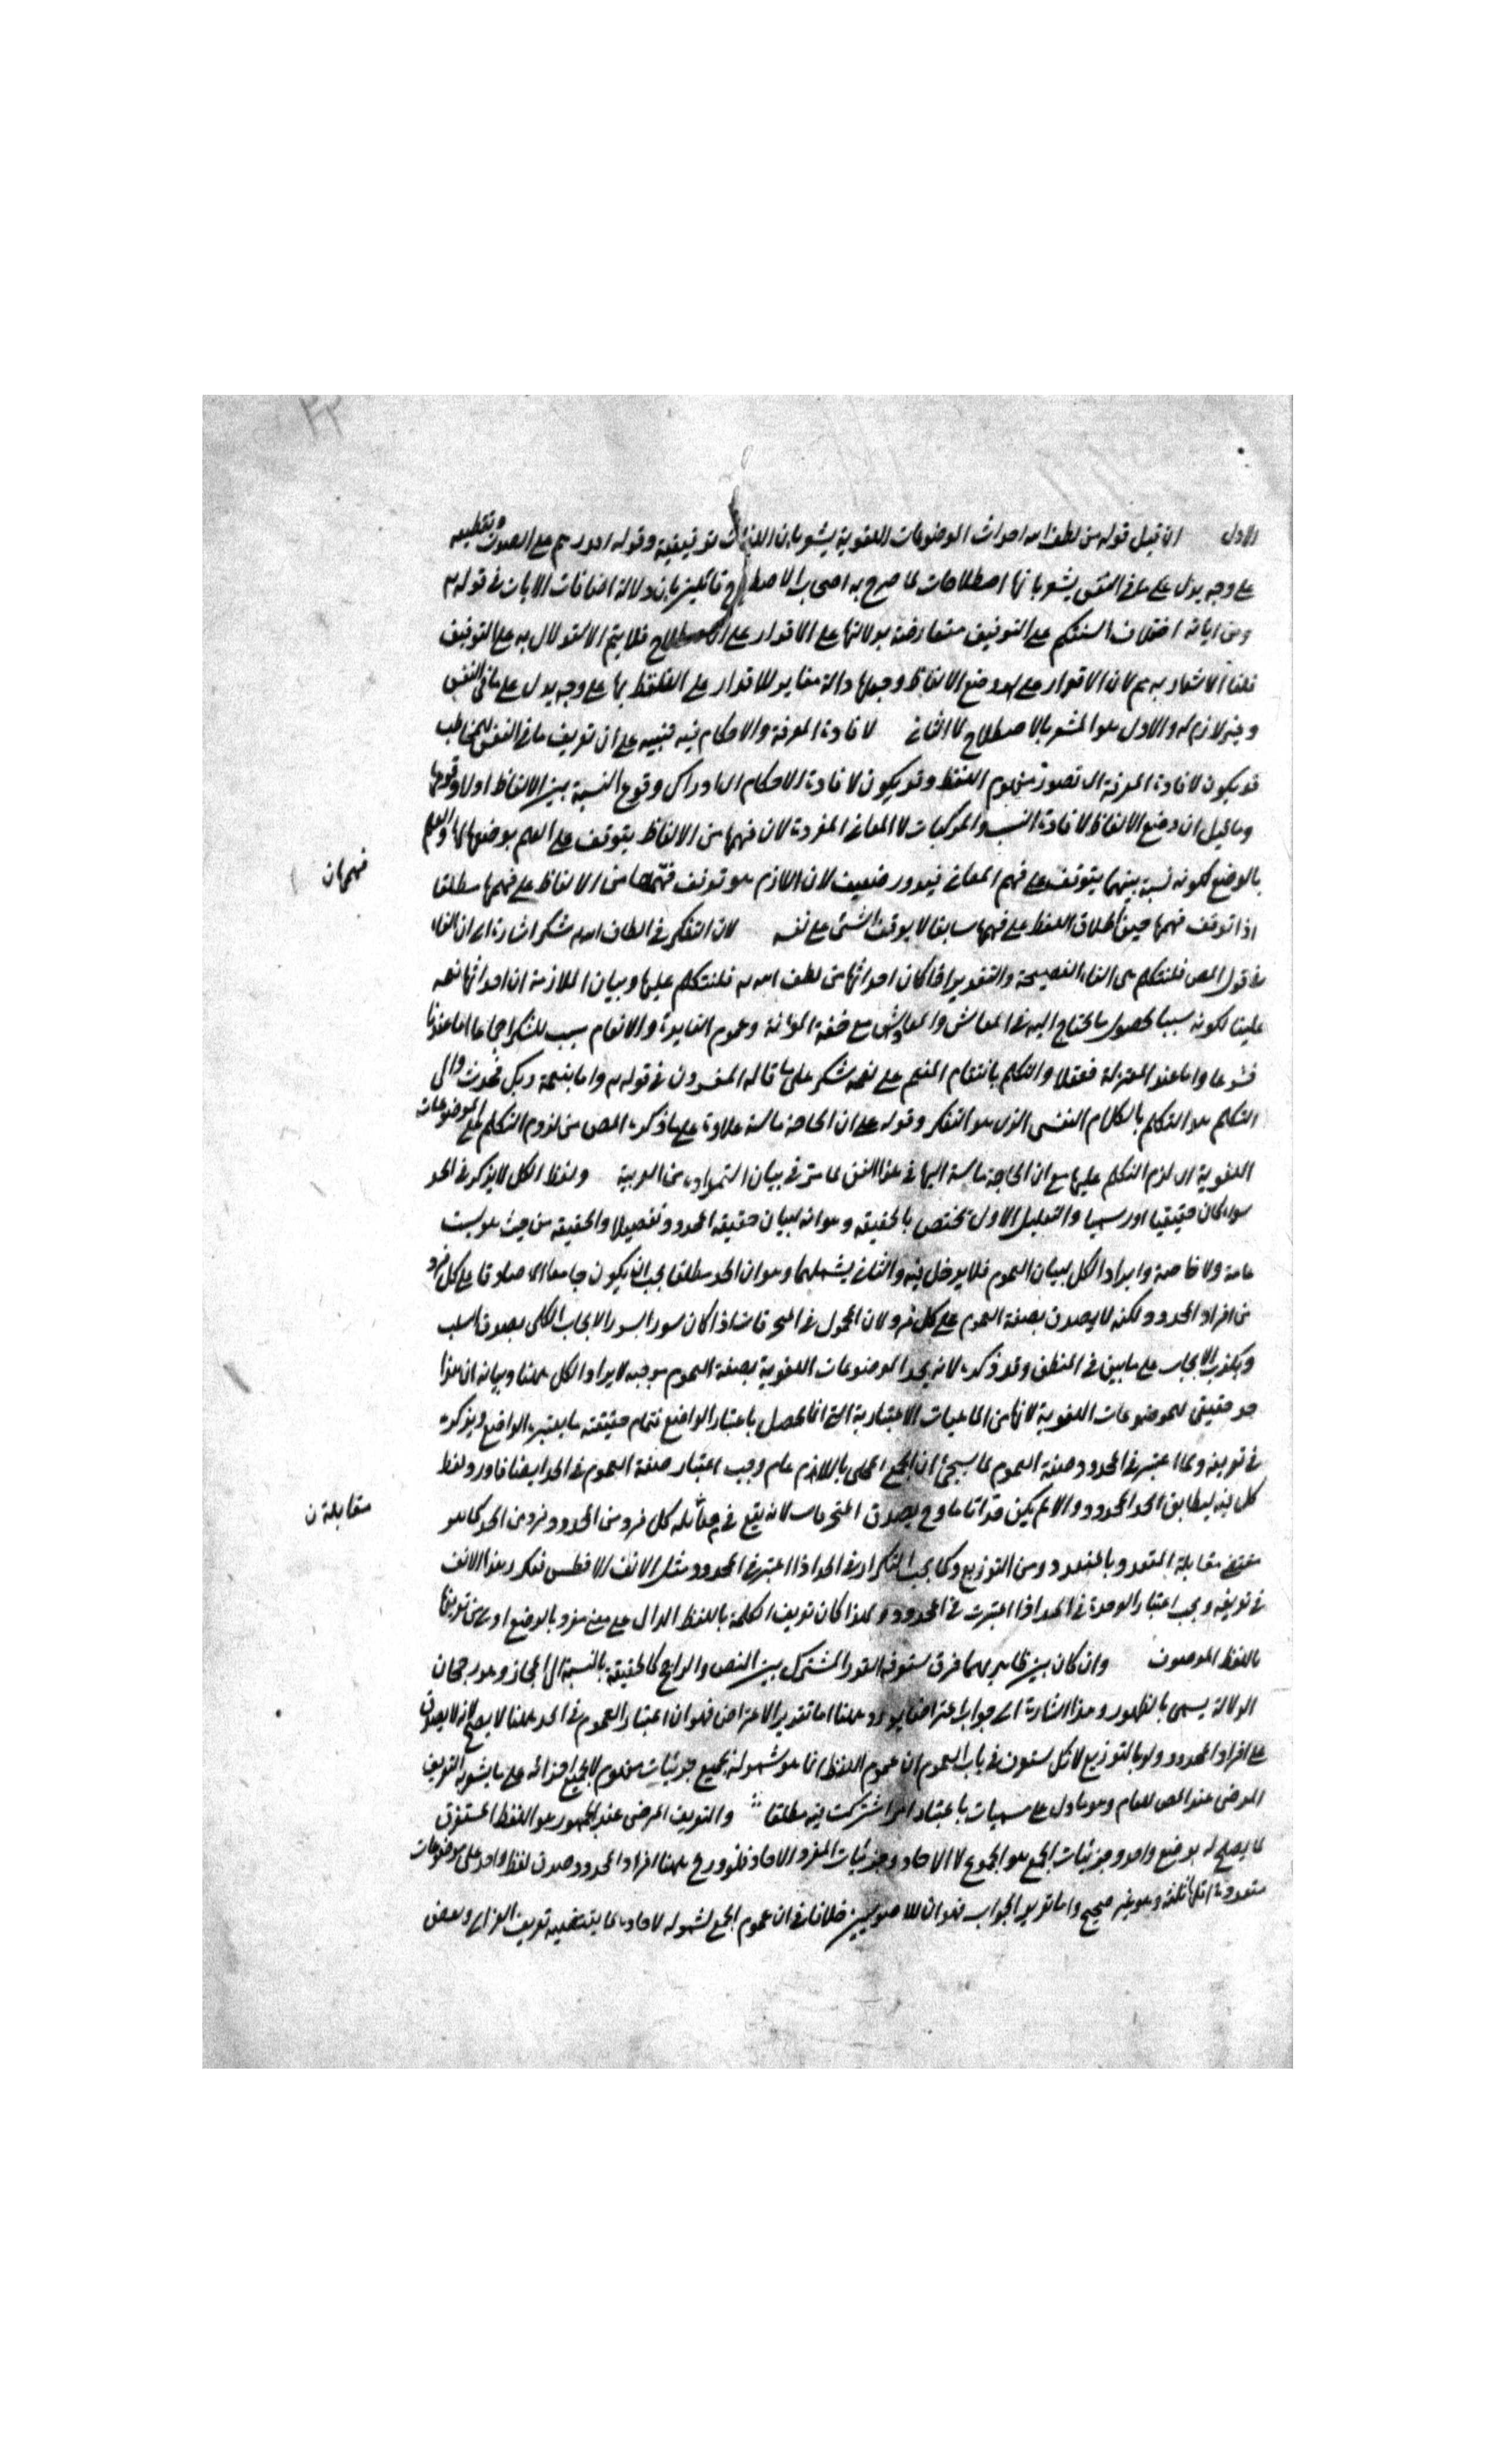 الاول ان قيل قوله من لطف الله احداث الموضوعات اللغوية يشعر بان اللغات توقيفية وقوله اقدرهم على الصوت وتقطيعه
على وجه يدل على ما فى النفس يشعر بانها اصطلاحات لما صرح به اصحاب الاصطلاح قائلين بان دلالة اضافات الايات فى قوله تع
ومن اياته اختلاف السنتكم على التوقيف متعارضة بدلالتها على الاقدار على الاصطلاح فلا يتم الاستدلال به على التوقيف
قلنا لا اشعار به ثم لان الاقدار على وضع الالفاظ وجعلها دالة مغاير للاقدار على التلفظ بها على وجه يدل على ما فى النفس
وغير لازم له والاول هو المشعر بالاصطلاح لا الثانى لافادة المعرفة والاحكام فيه تنبيه على ان تعريف ما فى النفس للمخاطب
قد يكون لافادة المعرفة اى تصور مفهوم اللفظ وقد يكون لافادة الاحكام اى ادراك وقوع النسبة بين الالفاظ اولا وقوعها
وما قيل ان وضع الالفاظ لافادة النسب والمركبات لا المعانى المفردة لان فهمها من الالفاظ يتوقف على العلم بوضعها لها والعلم
بالوضع لكونه نسبة بينهما يتوقف على فهم المعانى فيدور ضعيف لان اللازم هو توقف فهمها من الالفاظ على فهمها مطلقا
فهمهان
اذا توقف فهمها حين اطلاق اللفظ على فهمها سابقا لا يوقف الشئ على نفسه لان التفكر فى الطاف الله شكر اشارة الى ان الفاء
فى قول المص فلنتكلم هى الفاء الفصيحة والتقدير اذا كان احداثها من لطف الله تع فلنتكلم عليها وبيان الملازمة ان احداثها نعمة
علينا لكونه سببا لحصول ما يحتاج اليه فى المعاش والمعاد مع خفة المؤنة وعموم الفايدة والانعام سبب للشكر اجماعا اما عندنا
فشرعا واما عند المعتزلة فعقلا والتكلم بانتقام المنعم على نعمه شكر على ما قاله المفسرون فى قوله تع واما بنعمة ربك فحدث وال
التكلم هو التكلم بالكلام النفسى الذى هو التفكر وقوله على ان الحاجة ماسة علاوة على ما ذكره المص من لزوم التكلم على الموضوعات
اللغوية اى لزم التكلم عليها مع ان الحاجة ماسة اليها فى هذا الفن لما مر فى بيان استمداده من العربية ولفظ الكل لا يذكر فى الحد
سواء كان حقيقيا او رسميا والتعليل الاول يختص بالحقيقه وهو انه لبيان حقيقة المحدود تفصيلا والحقيقه من حيث هى ليست
عامة ولا خاصة وايراد الكل لبيان العموم فلا يدخل فيه والثانى يشملهما وهو ان الحد مطلقا يجب ان يكون جامعا اى صادقا على كل فرد
من افراد المحدود ولكنه لا يصدق بصفة العموم على كل فرد لان المحمول فى المنحرفات اذا كان سورا بسور الايجاب الكلى يصدق السلب
ويكذب الايجاب على ما بين فى المنطق وقد ذكره لانه يحد الموضوعات اللغوية بصفة العموم توجيه لايراد الكل ههنا وبيانه ان هذا
حد حقيقى للموضوعات اللغوية لانها من الماهيات الاعتبارية التى انما تحصل باعتبار الواضع فتمام حقيقته ما يعتبره الواضع ويذكره
فى تعريفه ولما اعتبر فى المحدود صفة العموم لما سيجئ ان الجمع المحلى باللام عام وجب اعتبار صفة العموم فى الحد ايضا فاورد لفظ
كل فيه ليطابق الحد المحدود والا لم يكن حدا تاما وح يصدق المنحرفات لانه يقع فى مقابلة كل فرد من المحدود فرد من الحد كما هو
مقابلة ن
مقتضى مقابلة المتعدد بالمتعدد من التوزيع وكما يجب التكرار فى الحد اذا اعتبر فى المحدود مثل الانف الافطس فتكرر هذا الانف
فى تعريفه ويجب اعتبار الوحدة فى الحد اذا اعتبرت فى المحدود ولهذا كان تعريف الكلمة باللفظ الدال على معنى مفرد بالوضع اولى من تعريفها
باللفظ الموصوف وان كان بين ظاهريهما فرق ستعرفه القدر المشترك بين النص والراجح كالحقيقة بالنسبة الى المجاز وهو رجحان
الدلالة يسمى بالظهور وهذا اشارة الى جواب اعتراض يورد ههنا اما تقرير الاعتراض فهو ان اعتبار العموم فى الحد ههنا لا يصح لانه لا يصدق
على افراد المحدود ولو بالتوزيع لانك ستعرف فى باب العموم ان عموم اللفظ انما هو شموله لجميع جزئيات مفهوم لا لجميع اجزائه على ما يشعر به التعريف
المرضى عند المص للعام وهو ما دل على مسميات باعتبار امر اشتركت فيه مطلقا والتعريف المرضى عند الجمهور هو اللفظ المستغرق
لما يصلح له بوضع واحد وجزئيات الجمع هو الجموع لا الاحاد وجزئيات المفرد الاحاد فلو ورد ههنا افراد المحدود صدق لفظ واحد على موضوعات
متعددة اقلها ثلثة وهو غير صحيح واما تقرير الجواب فهو ان للاصوليين خلافا فى ان عموم الجمع لشموله لاحاده كما يقتضيه تعريف الغزالى وبعض